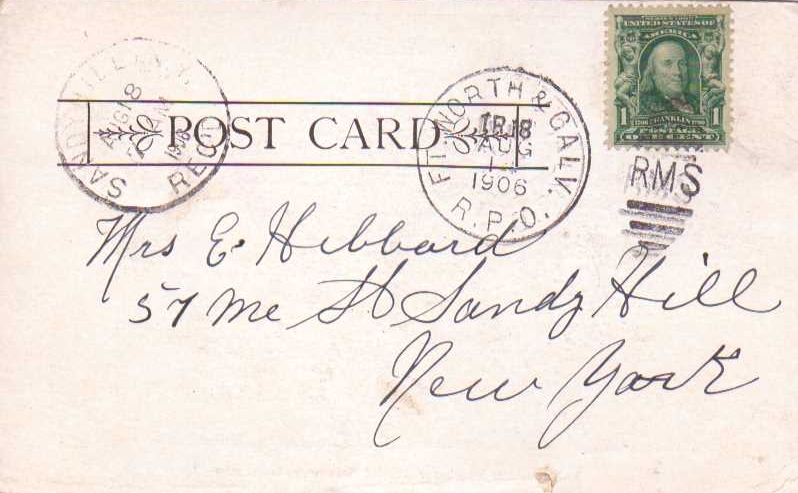 SANDY HILL, N.Y.
AUG 18
1906
REC'D.
POST CARD
FT. WORTH & GALV.
TR. 18
AUG
1906
R.P.O.
RMS
SERIES 1902
UNITED STATES OF
AMERICA
1 FRANKLIN 1
1706 1790
POSTAGE
ONE CENT
Mrs E. Hibbard
57 Me St Sandy Hill
New York